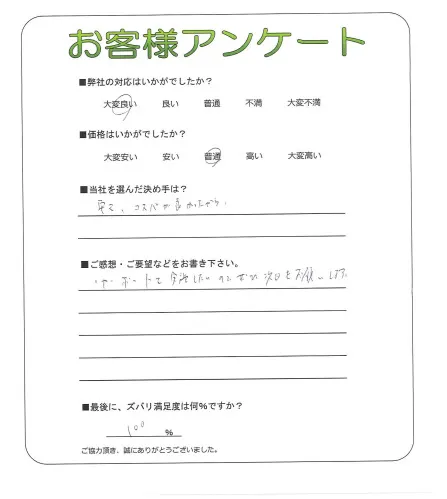 お客様アンケート
■弊社の対応はいかがでしたか？
大変良い 良い 普通 不満 大変不満
■価格はいかがでしたか？
大変安い 安い 普通 高い 大変高い
■当社を選んだ決め手は？
安く、コスパが良かったから。
■ご感想・ご要望などをお書き下さい。
次回もお願いします
■最後に、ズバリ満足度は何%ですか？
100 %
ご協力頂き、誠にありがとうございました。